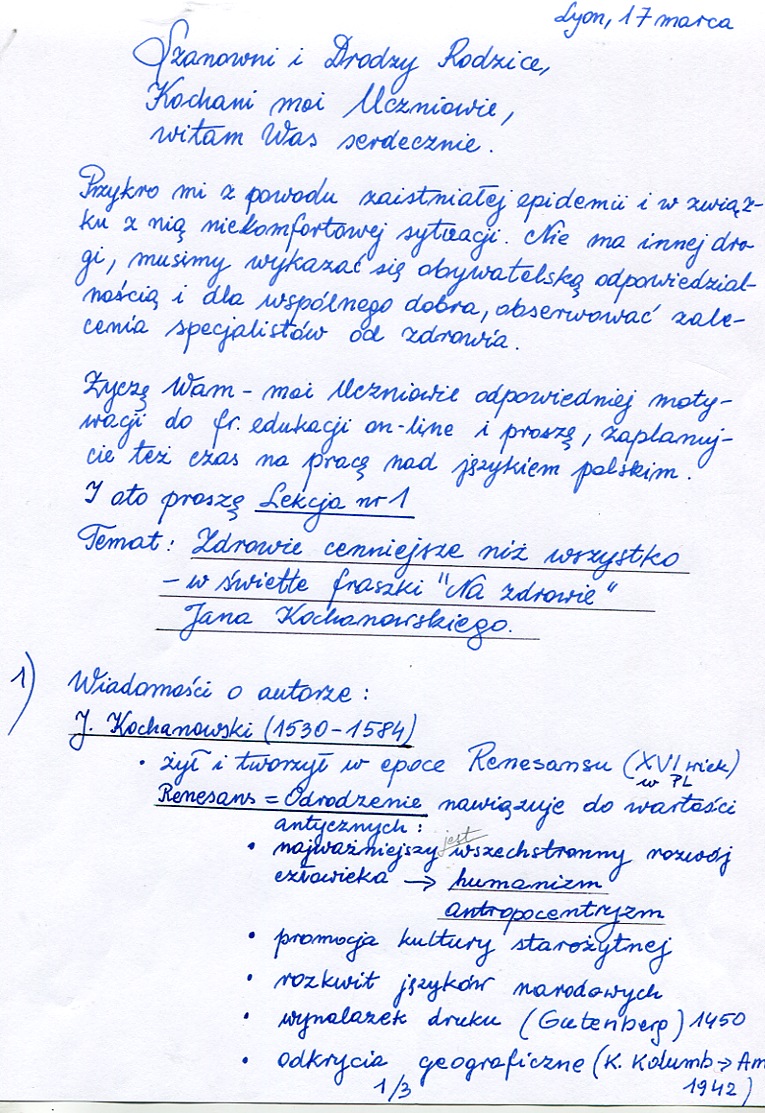 Lyon, 17 marca
Szanowni i Drodzy Rodzice,
Kochani moi Uczniowie,
witam Was serdecznie.
Przykro mi z powodu zaistniałej epidemii i w związ-
ku z nią niekomfortowej sytuacji. Nie ma innej dro-
gi, musimy wykazać się obywatelską odpowiedzial-
nością i dla wspólnego dobra, obserwować zale-
cenia specjalistów od zdrowia.
Życzę Wam - moi Uczniowie odpowiedniej moty-
wacji do fr. edukacji on-line i proszę, zaplanuj-
cie też czas na pracę nad językiem polskim.
I oto proszę Lekcja nr 1
Temat: Zdrowie cenniejsze niż wszystko
- w świetle fraszki "Na zdrowie"
Jana Kochanowskiego.
1) Wiadomości o autorze:
J. Kochanowski (1530-1584)
• żył i tworzył w epoce Renesansu (XVI wiek)
w PL
Renesans = Odrodzenie nawiązuje do wartości
antycznych:
• najważniejszy jest wszechstronny rozwój
człowieka → humanizm
antropocentryzm
• promocja kultury starożytnej
• rozkwit języków narodowych
• wynalazek druku (Gutenberg) 1450
• odkrycia geograficzne (K. Kolumb → Am
1942)
1/3